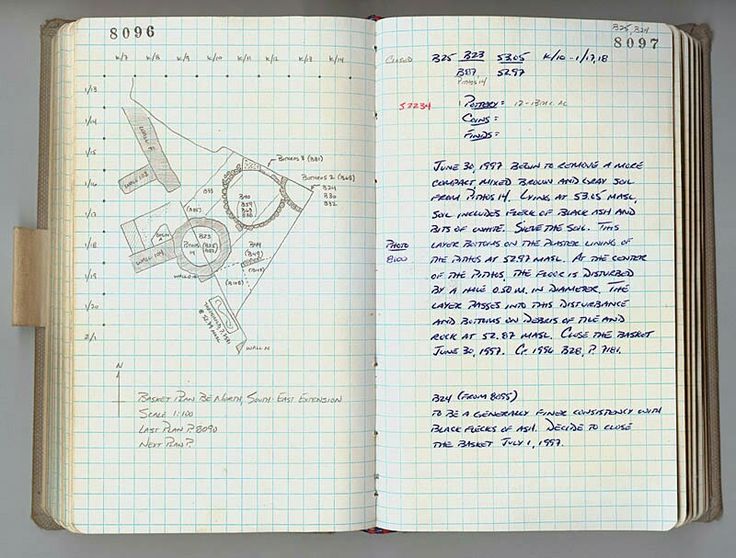 8096
K/7 K/8 K/9 K/10 K/11 K/12 K/13 K/14
1/13
1/14
1/15
1/16
1/17
1/18
1/19
1/20
2/1
WALL F
WALL 103
WALL 104
BOTHROS 3 (B31)
BOTHROS 2
B24
B30
B32
B33
B23
PITHOS
14
B44
WALL N
N
BASKET PLAN BE NORTH, SOUTH-EAST EXTENSION
SCALE 1:100
LAST PLAN P. 8090
NEXT PLAN P.
B25, B24
8097
CLOSED B25 B23 53.05 K/10-1/17,18
B87, 52.97
PITHOS 14
57234
POTTERY: 12-13TH C. AC
COINS:
FINDS:
JUNE 30, 1997 BEGIN TO REMOVE A MORE
COMPACT MIXED BROWN AND GRAY SOIL
FROM PITHOS 14. LYING AT 53.05 MASL,
SOIL INCLUDES FLECK OF BLACK ASH AND
BITS OF WHITE. SIEVE THE SOIL. THIS
LAYER BOTTOMS ON THE PLASTER LINING OF
PHOTO
8100
THE PITHOS AT 52.97 MASL. AT THE CENTER
OF THE PITHOS, THE FLOOR IS DISTURBED
BY A HOLE 0.50 M. IN DIAMETER. THE
LAYER PASSES INTO THIS DISTURBANCE
AND BOTTOMS ON DEBRIS OF TILE AND
ROCK AT 52.87 MASL. CLOSE THE BASKET
JUNE 30, 1997. CF. 1996 B28, P. 7181.
B24 (FROM 8095)
TO BE A GENERALLY FINER CONSISTENCY WITH
BLACK FLECKS OF ASH. DECIDE TO CLOSE
THE BASKET JULY 1, 1997.